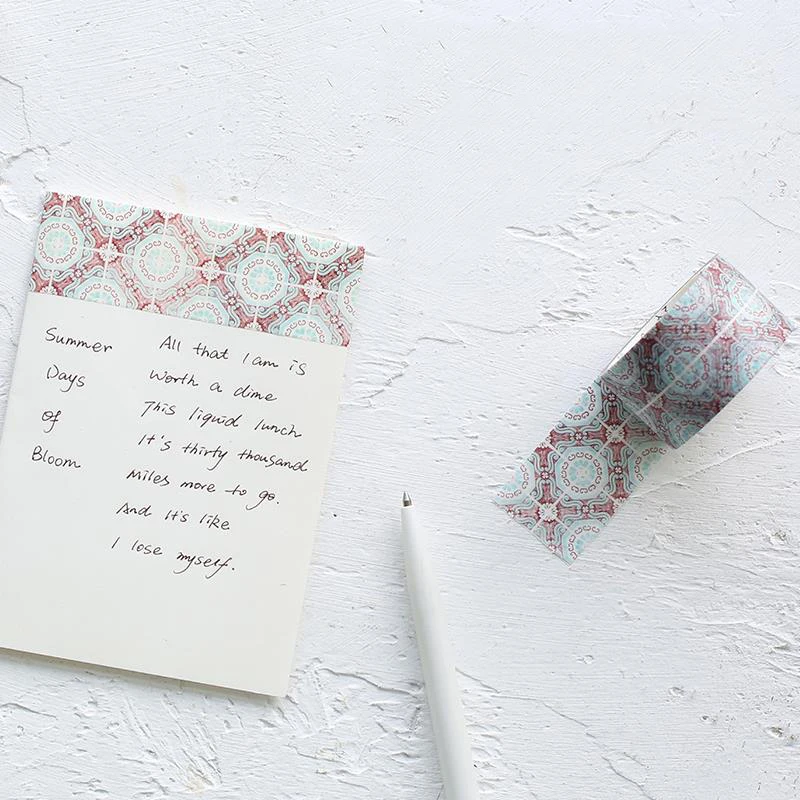 Summer
Days
of
Bloom
All that I am is
Worth a dime
This liquid lunch
It's thirty thousand
Miles more to go.
And It's like
I lose myself.